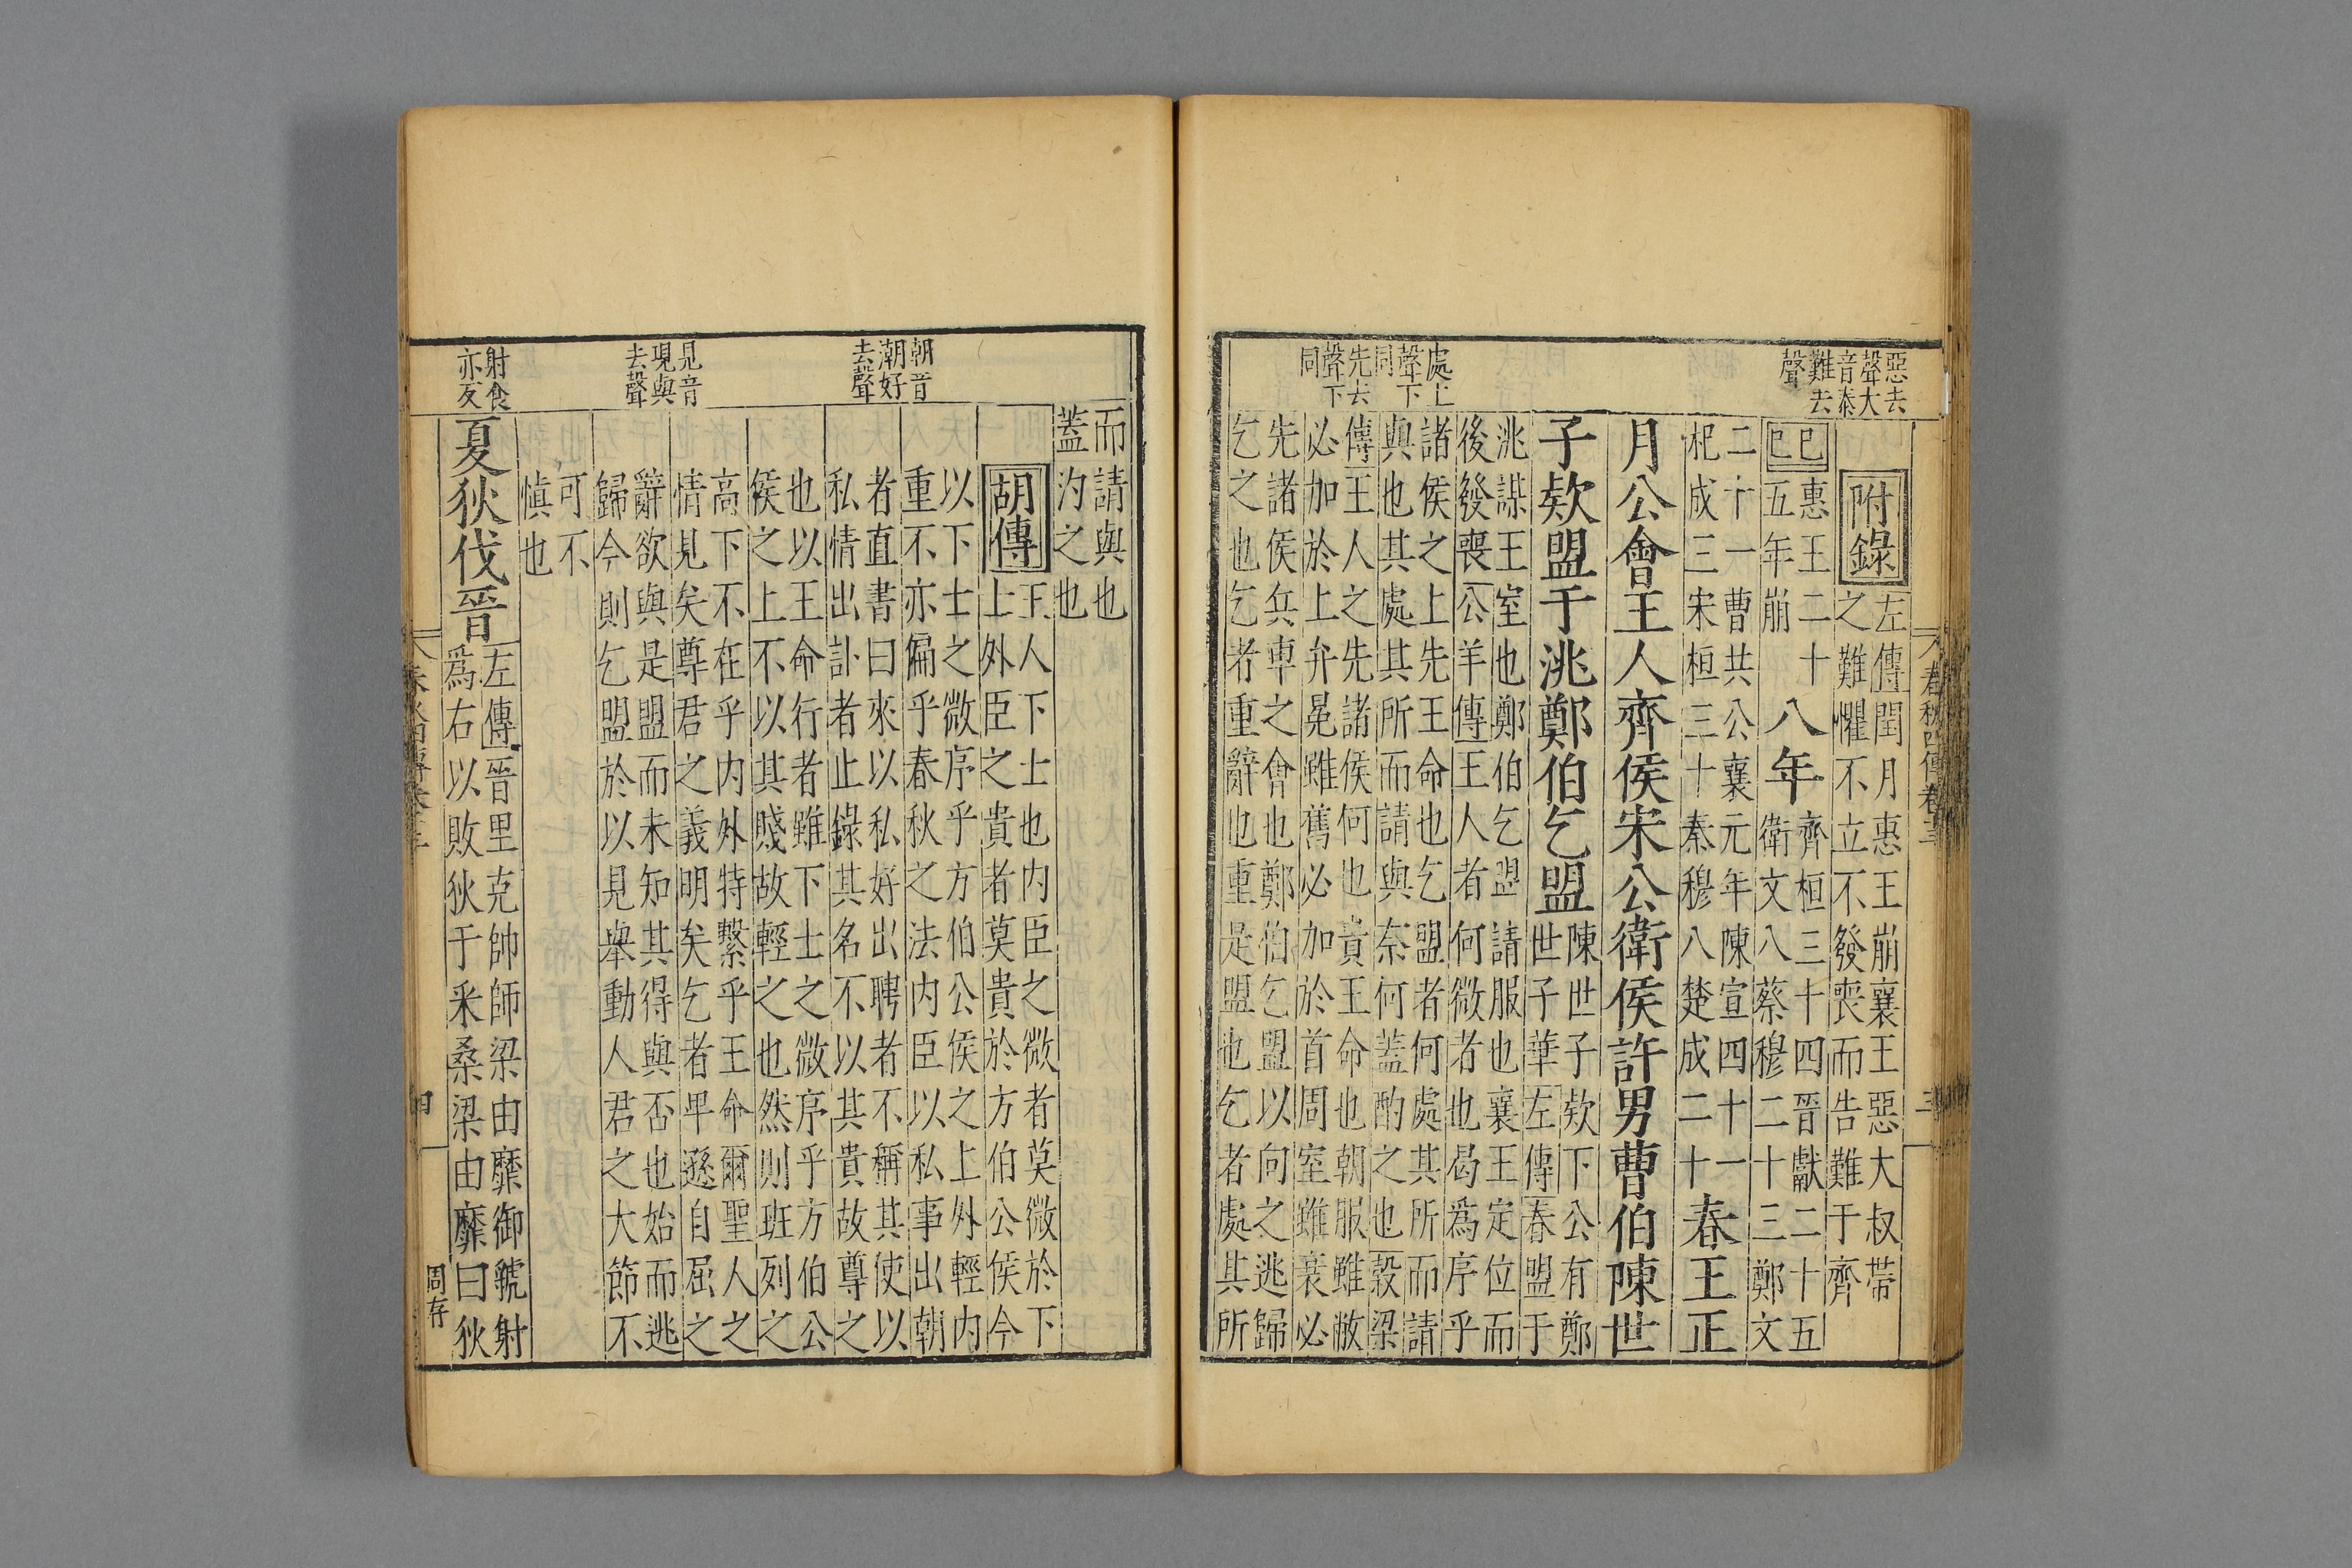 惡去
聲大
音泰
難去
聲
處上
聲下
同
先去
聲下
同
附錄
左傳閏月惠王崩襄王惡大叔帶
之難懼不立不發喪而告難于齊
己巳
惠王二十
五年崩
八年
齊桓三十四晉獻二十五
衛文八蔡穆二十三鄭文
二十一曹共公襄元年陳宣四十一
杞成三宋桓三十秦穆八楚成二十
春王正
月公會王人齊侯宋公衛侯許男曹伯陳世
子欵盟于洮鄭伯乞盟
陳世子欵下公有鄭
世子華左傳春盟于
洮謀王室也鄭伯乞盟請服也襄王定位而
後發喪公羊傳王人者何微者也曷爲序乎
諸侯之上先王命也乞盟者何處其所而請
與也其處其所而請與奈何蓋酌之也穀梁
傳王人之先諸侯何也貴王命也朝服雖敝
必加於上弁冕雖舊必加於首周室雖衰必
先諸侯兵車之會也鄭伯乞盟以向之逃歸
乞之也乞者重辭也重是盟也乞者處其所
朝音
潮好
去聲
見音
現與
去聲
射食
亦反
而請與也
蓋汋之也
胡傳
王人下士也内臣之微者莫微於下
上外臣之貴者莫貴於方伯公侯今
以下士之微序乎方伯公侯之上外輕内
重不亦偏乎春秋之法内臣以私事出朝
者直書曰來以私好出聘者不稱其使以
私情出訃者止錄其名不以其貴故尊之
也以王命行者雖下士之微序乎方伯公
侯之上不以其賤故輕之也然則班列之
高下不在乎内外特繫乎王命爾聖人之
情見矣尊君之義明矣乞者卑遜自屈之
辭欲與是盟而未知其得與否也始而逃
歸今則乞盟於以見舉動人君之大節不
可不
慎也
夏狄伐晉
左傳晉里克帥師梁由靡御虢射
爲右以敗狄于采桑梁由靡曰狄
周存